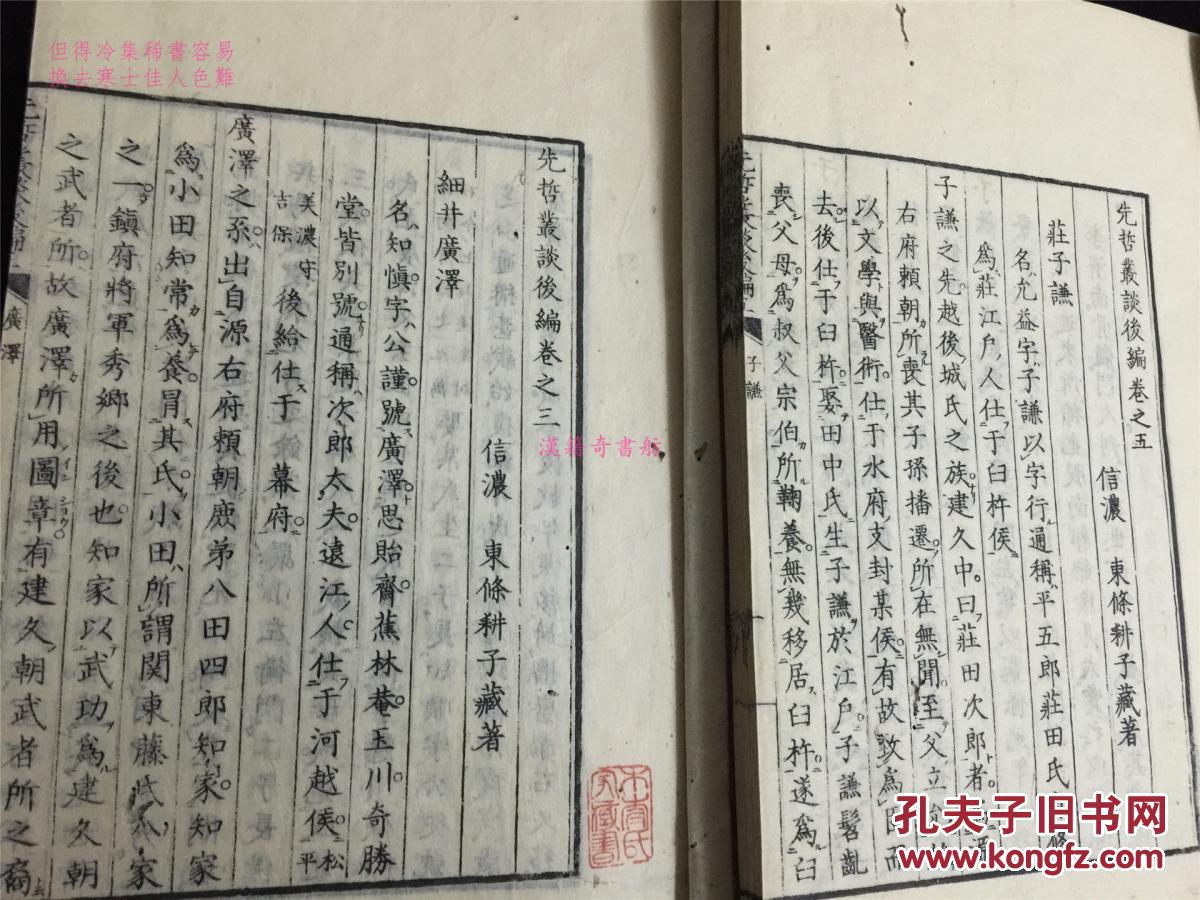 但得冷集稀書容易
換去寒士佳人色難
先哲叢談後編卷之五
信濃 東條耕子藏著
莊子謙
名允益字子謙以字行通稱平五郎莊田氏
爲莊江戶人仕于臼杵侯
子謙之先越後城氏之族建久中曰莊田次郎者
右府賴朝所喪其子孫播遷所在無聞至父立
以文學與醫術仕于水府支封某侯有故致爲
去後仕于臼杵娶田中氏生子謙於江戶子謙髫齔
喪父母爲叔父宗伯所鞠養無幾移居臼杵遂爲臼
子謙
先哲叢談後編卷之三
信濃 東條耕子藏著
細井廣澤
名知愼字公謹號廣澤思貽齋蕉林菴玉川奇勝
堂皆別號通稱次郎太夫遠江人仕于河越侯松平
美濃守吉保後給仕于幕府
廣澤之系出自源右府賴朝鹿弟八田四郎知家知家
爲小田知常爲養冐其氏小田所謂関東藤氏八家
之一鎮府將軍秀鄉之後也知家以武功爲建久朝
之武者所故廣澤所用圖章有建久朝武者所之裔
廣澤
漢籍奇書舫
孔夫子旧书网
www.kongfz.com